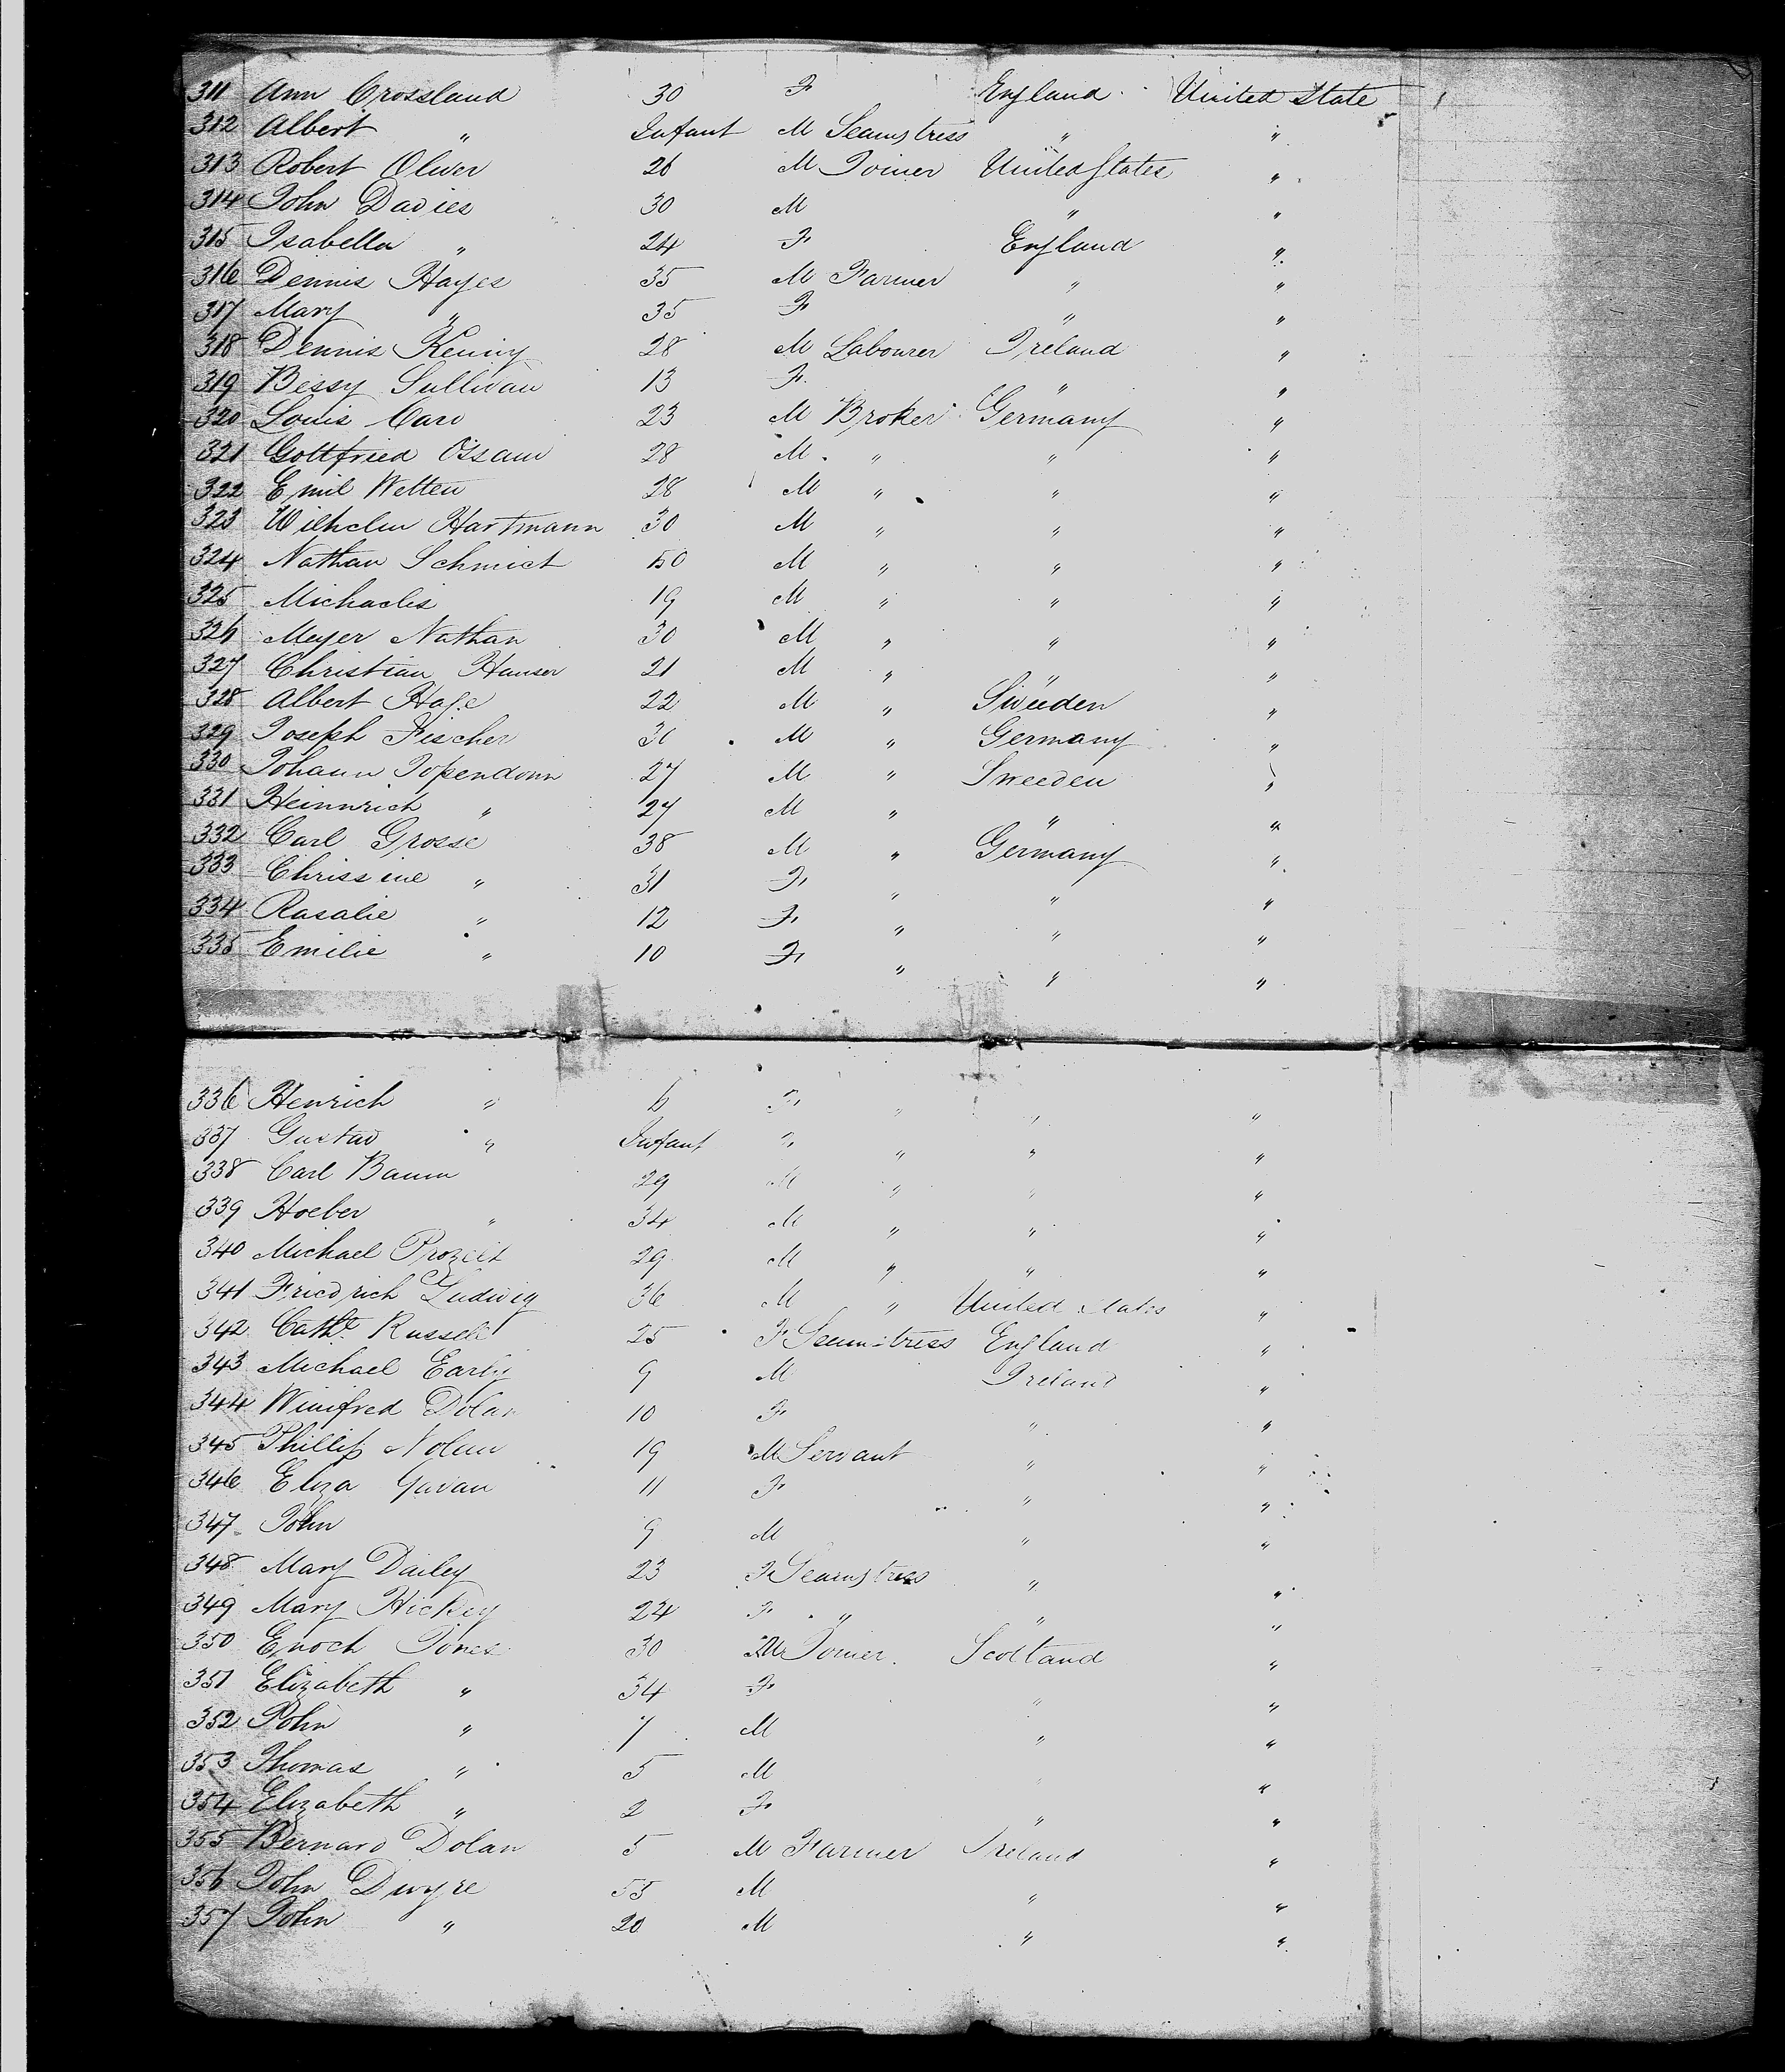 311 Ann Crossland 30 F England United State
312 Albert " Infant M Seamstress " "
313 Robert Oliver 26 M Joiner United States "
314 John Davies 30 M " "
315 Isabella " 24 F England "
316 Dennis Hayes 35 M Farmer " "
317 Mary " 35 F " "
318 Dennis Kenny 28 M Labourer Ireland "
319 Bessy Sullivan 13 F " "
320 Louis Caro 23 M Broker Germany "
321 Gottfried 28 M " " "
322 Emil Welten 28 M " " "
323 Wilhelm Hartmann 30 M " " "
324 Nathan Schmict 50 M " " "
325 Michaelis 19 M " " "
326 Meyer Nathan 30 M " " "
327 Christian Hanser 21 M " " "
328 Albert Hage 22 M " Sweeden "
329 Joseph Fischer 30 M " Germany "
330 Johann 27 M " Sweeden "
331 Heinnrich " 27 M " " "
332 Carl Grosse 38 M " Germany "
333 Chrissine " 31 F " " "
334 Rasalie " 12 F " " "
335 Emilie " 10 F " " "
336 Henrich " 6 F " " "
337 Gustav " Infant " " " "
338 Carl Baum 29 M " " "
339 Hoeber " 34 M " " "
340 Michael 29 M " " "
341 Friedrich Ludwig 36 M " United States "
342 Cathe Russell 25 F Seamstress England "
343 Michael Early 9 M Ireland "
344 Winifred Dolan 10 F " "
345 Phillip Nolan 19 M Servant " "
346 Eliza Gavan 11 F " "
347 John 9 M " "
348 Mary Dailey 23 F Seamstress " "
349 Mary Hickey 24 F " " "
350 Enoch Jones 30 M Joiner Scotland "
351 Elizabeth " 34 F " "
352 John " 7 M " "
353 Thomas " 5 M " "
354 Elizabeth " 2 F " "
355 Bernard Dolan 5 M Farmer Ireland "
356 John Dwyre 55 M " "
357 John " 20 M " "